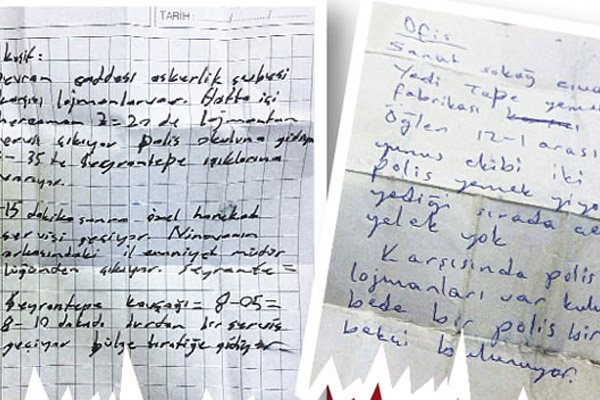 TARİH: ....../....../......
kışık:
evran caddesi askerlik şubesi
karşısı lojmanları var. Hafta içi
her zaman 7= 20 de lojmandan
servis çıkıyor polis okuluna gidiyor
- 35 te Seyrantepe ışıklarına
varıyor.
-15 dakika sonra özel harekat
servisi geçiyor. Ninovanın
arkasındaki il emniyet müdür
lüğünden çıkıyor. Seyrante =
Seyrantepe kavşağı = 8-05 =
8- 10 da burdan bir servis
geçiyor bölge trafiğe gidiyor
Ofis
Sanat sokağı civa
Yedi Tepe yemek
fabrikası
Öğlen 12-1 arası
yunus ekibi iki
polis yemek yiyo
yediği sırada
yelek yok
Karşısında polis
lojmanları var kulu
bede bir polis bir
bekçi bulunuyor.